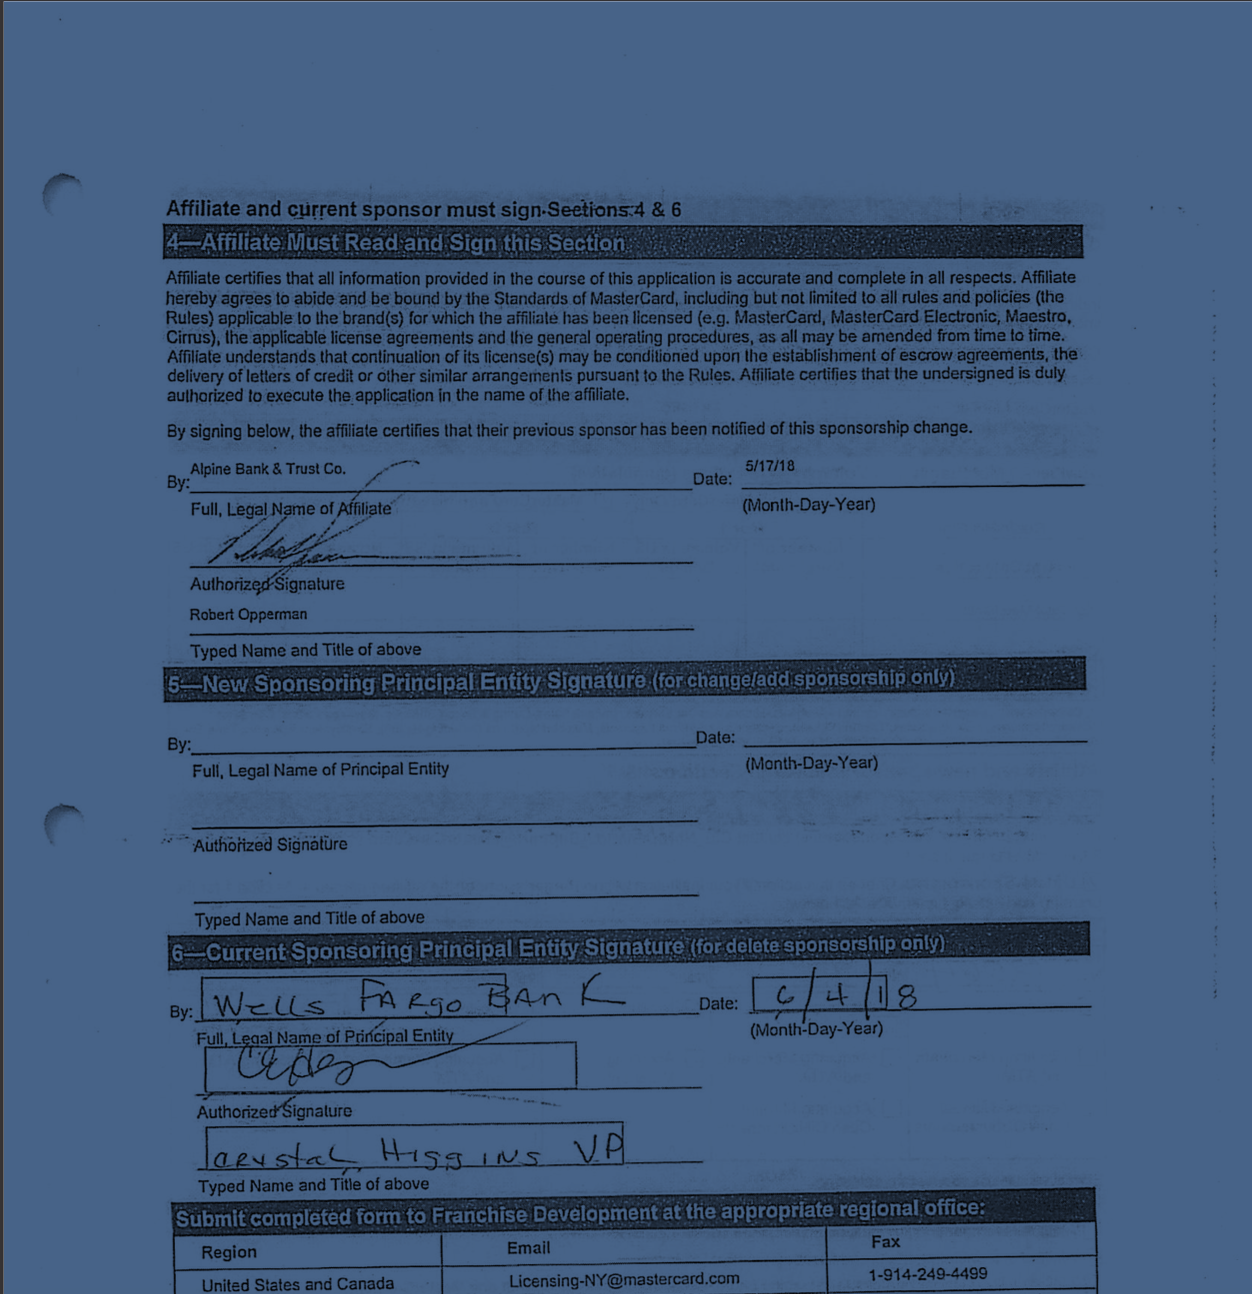 Affiliate and current sponsor must sign Sections 4 & 6
4—Affiliate Must Read and Sign this Section
Affiliate certifies that all information provided in the course of this application is accurate and complete in all respects. Affiliate
hereby agrees to abide and be bound by the Standards of MasterCard, including but not limited to all rules and policies (the
Rules) applicable to the brand(s) for which the affiliate has been licensed (e.g. MasterCard, MasterCard Electronic, Maestro,
Cirrus), the applicable license agreements and the general operating procedures, as all may be amended from time to time.
Affiliate understands that continuation of its license(s) may be conditioned upon the establishment of escrow agreements, the
delivery of letters of credit or other similar arrangements pursuant to the Rules. Affiliate certifies that the undersigned is duly
authorized to execute the application in the name of the affiliate.
By signing below, the affiliate certifies that their previous sponsor has been notified of this sponsorship change.
By: Alpine Bank & Trust Co. Date: 5/17/18
Full, Legal Name of Affiliate (Month-Day-Year)
Authorized Signature
Robert Opperman
Typed Name and Title of above
5—New Sponsoring Principal Entity Signature (for change/add sponsorship only)
By: Date:
Full, Legal Name of Principal Entity (Month-Day-Year)
Authorized Signature
Typed Name and Title of above
6—Current Sponsoring Principal Entity Signature (for delete sponsorship only)
By: Wells Fargo Bank Date: 6/4/18
Full, Legal Name of Principal Entity (Month-Day-Year)
Authorized Signature
Crystal Higgins VP
Typed Name and Title of above
Submit completed form to Franchise Development at the appropriate regional office:
Region Email Fax
United States and Canada Licensing-NY@mastercard.com 1-914-249-4499